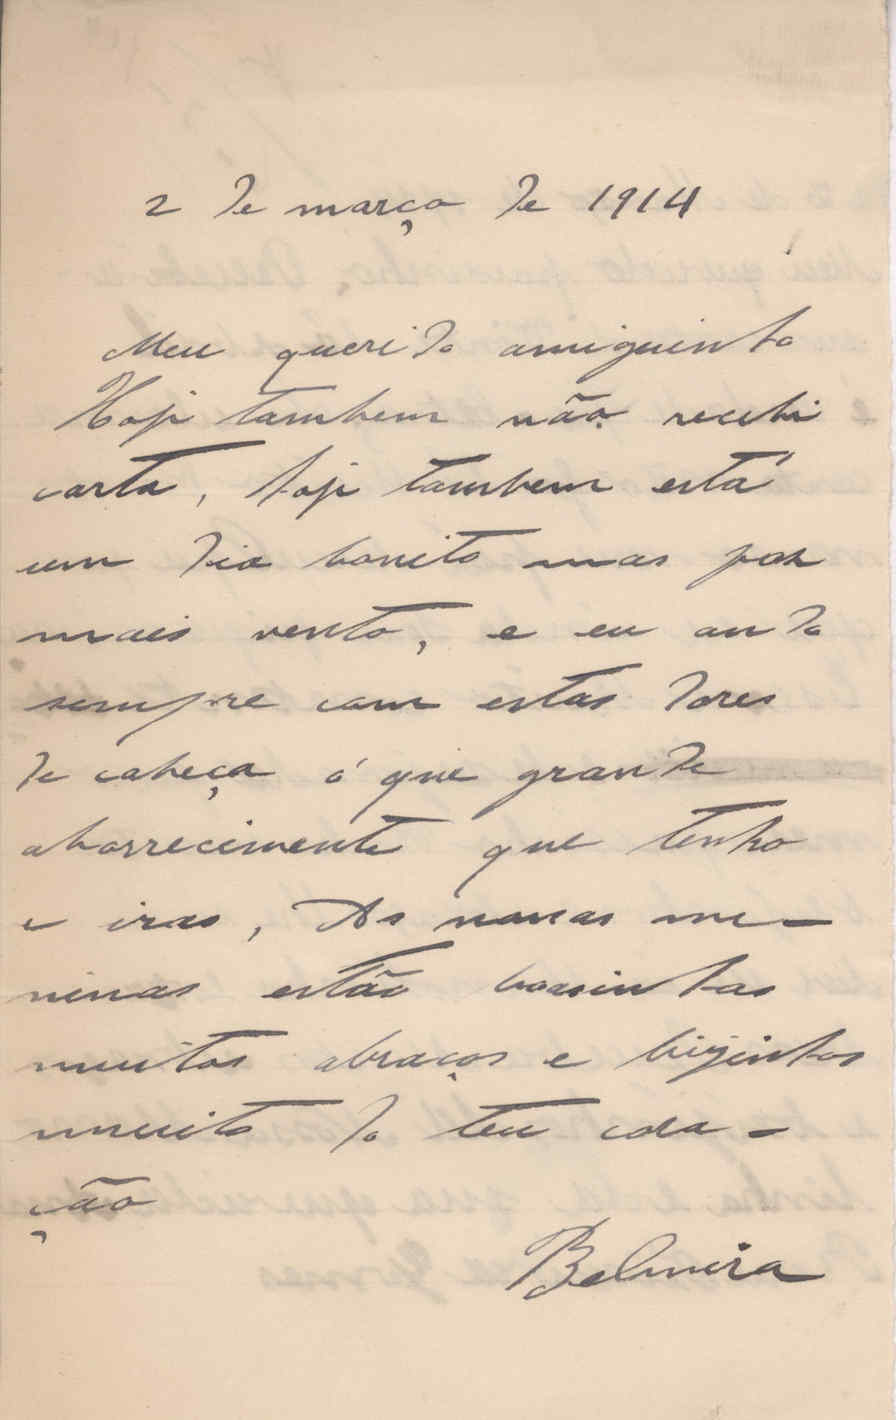 2 de março de 1914
Meu querido amiguinho
Hoji tambem não recebi
carta, hoji tambem está
um dia bonito mas faz
mais vento, e eu ando
sempre com estas dores
de cabeça ó que grande
aborrecimento que tenho
e iras, As nossas me-
ninas estão boasinhas
muitos abraços e bijinhos
muito do teu cora-
ção
Belmira